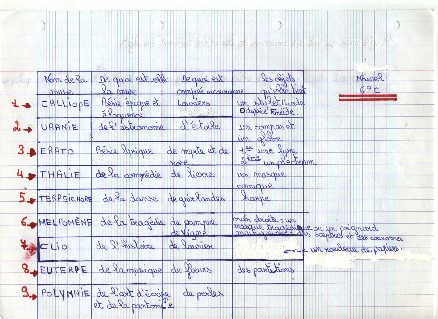 Nom de la muse De quoi est elle la muse De quoi est composé sa couronne les objets qu'elle tient
6e c
1 CALLIOPE Poésie épique et éloquence Lauriers un stylet
Odyssée Enéide
2 URANIE de l'astronomie d'Etoile un compas et un globe
3 ERATO Poésie lyrique de myrte et de rose une lyre un plectrum
4 THALIE de la comédie de lierre un masque comique
5 TERPSICHORE de la danse de guirlandes harpe
6 MELPOMÈNE de la tragédie de pampre de vigne main droite: un masque tragique ou un poignard
7 CLIO de l'histoire de laurier un rouleau de papier
8 EUTERPE de la musique de fleurs des partitions
9 POLYMNIE de l'art d'écrire et de la pantomime de perles